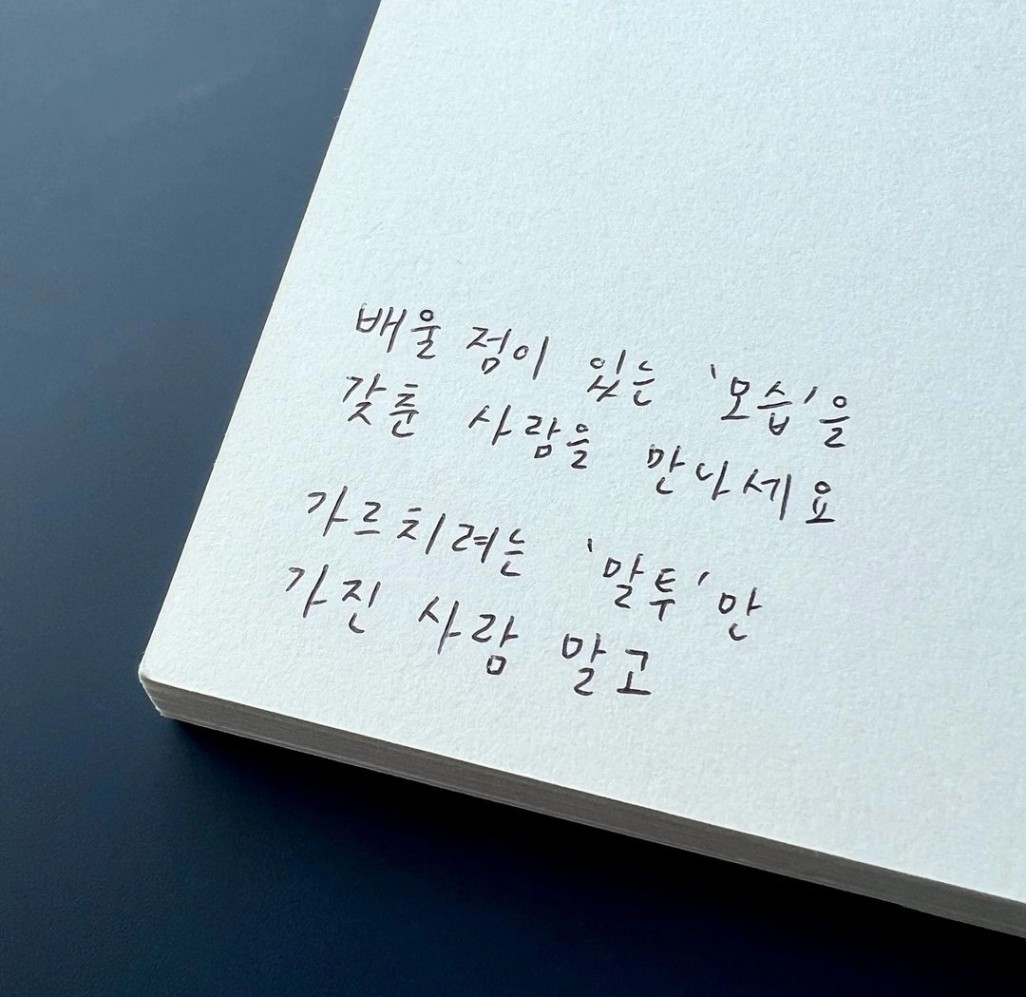 배울 점이 있는 '모습'을
갖춘 사람을 만나세요
가르치려는 '말투'만
가진 사람 말고